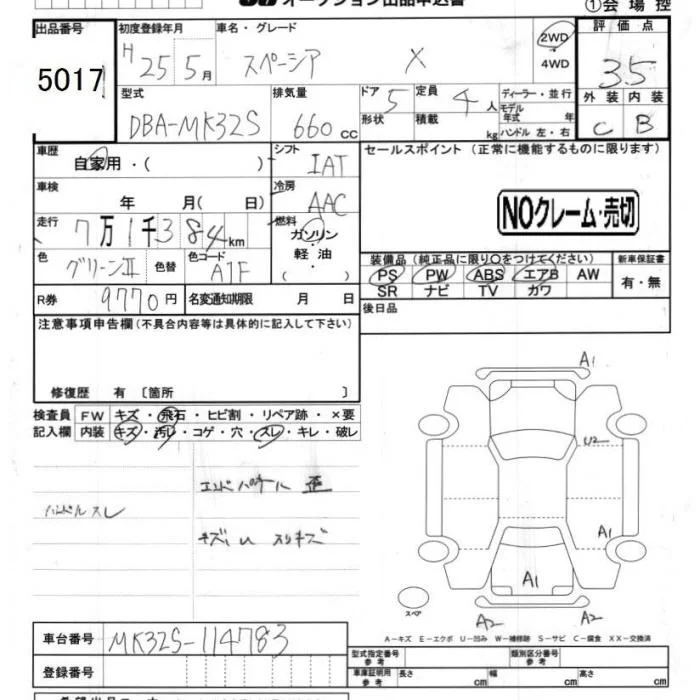 オークション出品申込書
①会場控
出品番号 初度登録年月 車名・グレード 2WD 評価点
5017 H 25 5月 スペーシア X 4WD 3.5
型式 排気量 ドア 5 定員 4人 ディーラー・並行 外装 内装
DBA-MK32S 660cc 形状 積載 kg モデル年式 年式 ハンドル 左・右 C B
車歴 シフト セールスポイント(正常に機能するものに限ります)
自家用・( ) IAT
車検 冷房
年 月( 日) AAC
NOクレーム・売切
走行 7万1千384km 燃料 ガソリン・軽油・( )
装備品(純正品に限り○をつけてください) 新車保証書
色 グリーンⅡ 色替 色コード A7F
PS PW ABS エアB AW 有・無
SR ナビ TV カワ
R券 9770円 名変通知期限 月 日
後日品
注意事項申告欄(不具合内容等は具体的に記入して下さい)
修復歴 有〔箇所 〕
検査員 FW キズ・飛石・ヒビ割・リペア跡・×要
記入欄 内装 キズ・汚レ・コゲ・穴・スレ・キレ・破レ
A1
U2
エンドパネル 歪
ハンドルスレ
A1
A1
スペア
A2 A2
A−キズ E−エクボ U−凹み W−補修跡 S−サビ C−腐食 XX−交換済
車台番号 MK32S-114783
型式指定番号 参考 類別区分番号 参考
登録番号
車庫証明用 参考 長さ cm 幅 cm 高さ cm